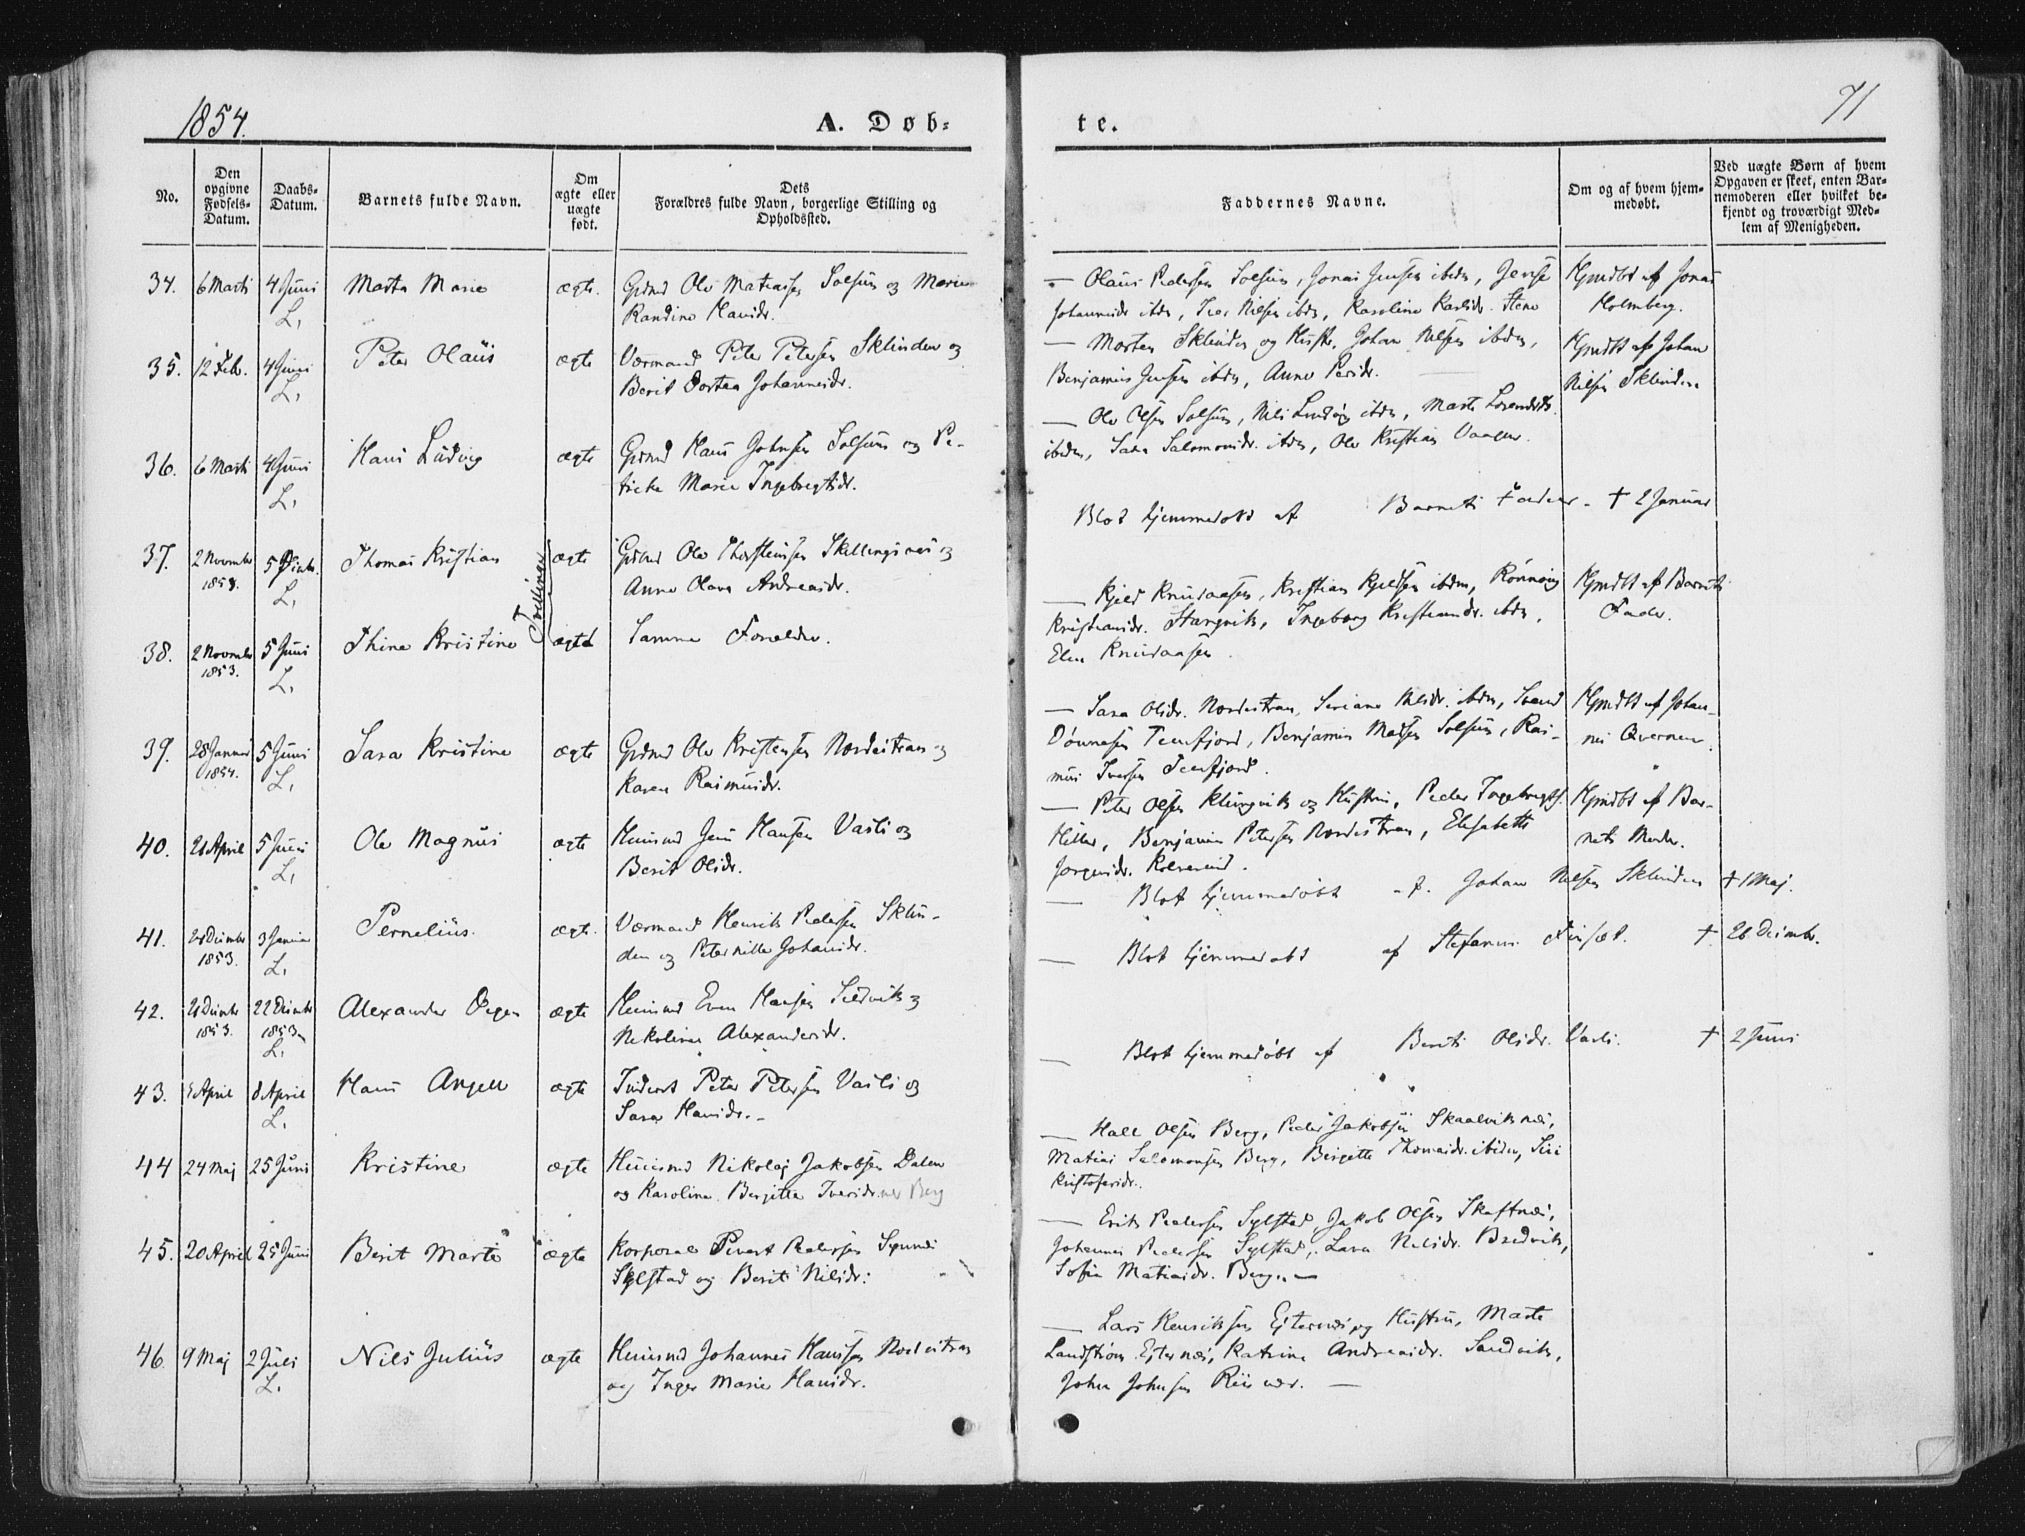 1854.
A. Døb-
te.
71
No.
Den opgivne Fødsels-Datum.
Daabs-Datum.
Barnets fulde Navn.
Om ægte eller uægte født.
Dets Forældres fulde Navn, borgerlige Stilling og Opholdssted.
Faddernes Navne.
Om og af hvem hjem-medøbt.
Ved uægte Børn af hvem Opgaven er skeet, enten Bar-nemoderen eller hvilket be-kjendt og troværdigt Med-lem af Menigheden.
34. 6 Marti 4 Juni Marta Marie ægte. Grdmd Ole Matiasen Solsem og Marie
L. Randine Hansdr.
— Olaus Pedersen Solsem, Jonas Jensen ibidm, Hjmdbt af Jonas
Johannesdr ibdm, Iver Nilsen ibdm, Karoline Karlsdr. Holmberg.
35. 12 Feb. 4 Juni Peter Olaüs ægte Værmand Peter Petersen Sklinden og
L. Berit Dortea Johannesdr.
— Morten Sklinden og Hustr, Johan Nilsen ibdm, Hjmdbt af Johan
Benjamin Jensen ibdm, Anne Persdr. Nilsen Sklinden
36. 6 Marti 4 Juni Hans Ludvig ægte Grdmd Hans Johnsen Solsem og Pe-
L. Marie Ingebregtsdr.
— Ole Olsen Solsem, Nils ibdm, Marte
ibidm, Sara Salomonsdr. ibdm, Ole Kristian Vaagen.
37. 2 November 5 L. Thomas Kristian ægte Grdmd Ole Thorsteinsen Skillingsnes og
1853. Anne Olava Andreasdr.
Blot hjemmedøbt af Barnets Fader. † 2 Januar
Tvillinger
38. 2 November 5 Juni Thine Kristine ægte Samme Forældre.
1853. L.
— Kjeld Knudsen, Kristian Kjeldsen ibdm, Rønnaug Hjmdbt af Barnets
Kristiansdr. Stangvik, Ingeborg Kristiansdr. ibdm, Fader.
Elen
39. 28 Januar 5 Juni Sara Kristine ægte Grdmd Ole Kristensen Nordestran og
1854. L. Karen Rasmusdr.
— Sara Olsdr. Nordestran, Nilsdr. ibdm, Hjmdbt af Johan-
Dønnesen Teenfjord, Benjamin Madsen Solsem, Ras- nes Qvernen.
mus Iversen Teenfjord.
40. 21 April 5 Juni Ole Magnus ægte Huusmd Jens Hansen Vasli og
L. Berit Olsdr.
— Peter Olsen Klungvik og Hustru, Peder Ingebregts. Hjmdbt af Bar-
Hiller, Benjamin Petersen Nordestran, Elisabeth nets Moder.
Jørgensdr. Kolverend.
41. 28 Decembr 3 Januar Pernelius. ægte. Værmand Henrik Pedersen Sklin-
1853. L. den og Peternille Johansdr.
— Blot hjemmedøbt af Johan Nilsen Sklinden † 1 Maj.
42. 21 Decembr 22 Decembr Alexander ægte Huusmd Even Hansen og
1853. 1853. L. Nekoline Alexandersdr.
— Blot hjemmedøbt af Stefanus Finset. † 26 Decembr.
43. April 8 April Hans Angell ægte Inderst Peter Petersen Vasli og
L. Sara Hansdr. —
— Blot hjemmedøbt af Berit Olsdr. Vasli. † 2 Juni
44 24 Maj 25 Juni Kristine ægte Huusmd Nikolaj Jakobsen Dalen
og Karoline Bergitta Iversdr. Berg
— Hall Olsen Berg, Peder Jakobsen Skaalviksnes,
Matias Salomonsen Berg, Bergitte Thomasdr. ibidm, Siri
Kristofersdr.
45. 20 April 25 Juni Berit Marte ægte Korporal Sivert Pedersen
Sylstad og Berit Nilsdr.
— Erik Pedersen Sylstad, Jakob Olsen Skaftnes,
Johannes Pedersen Sylstad, Lava Nilsdr. Bredvik,
Sofia Matiasdr. Berg. —
46. 9 Maj 2 Juli Nils Julius ægte Huusmd Johannes Hansen Nordestran
L. og Inger Marie Hansdr.
— Lars Henriksen Eiternes og Hustru, Marte
Landstrøm Eiternes, Katrine Andreasdr. Sandvik,
John Johnsen Riisvær. —